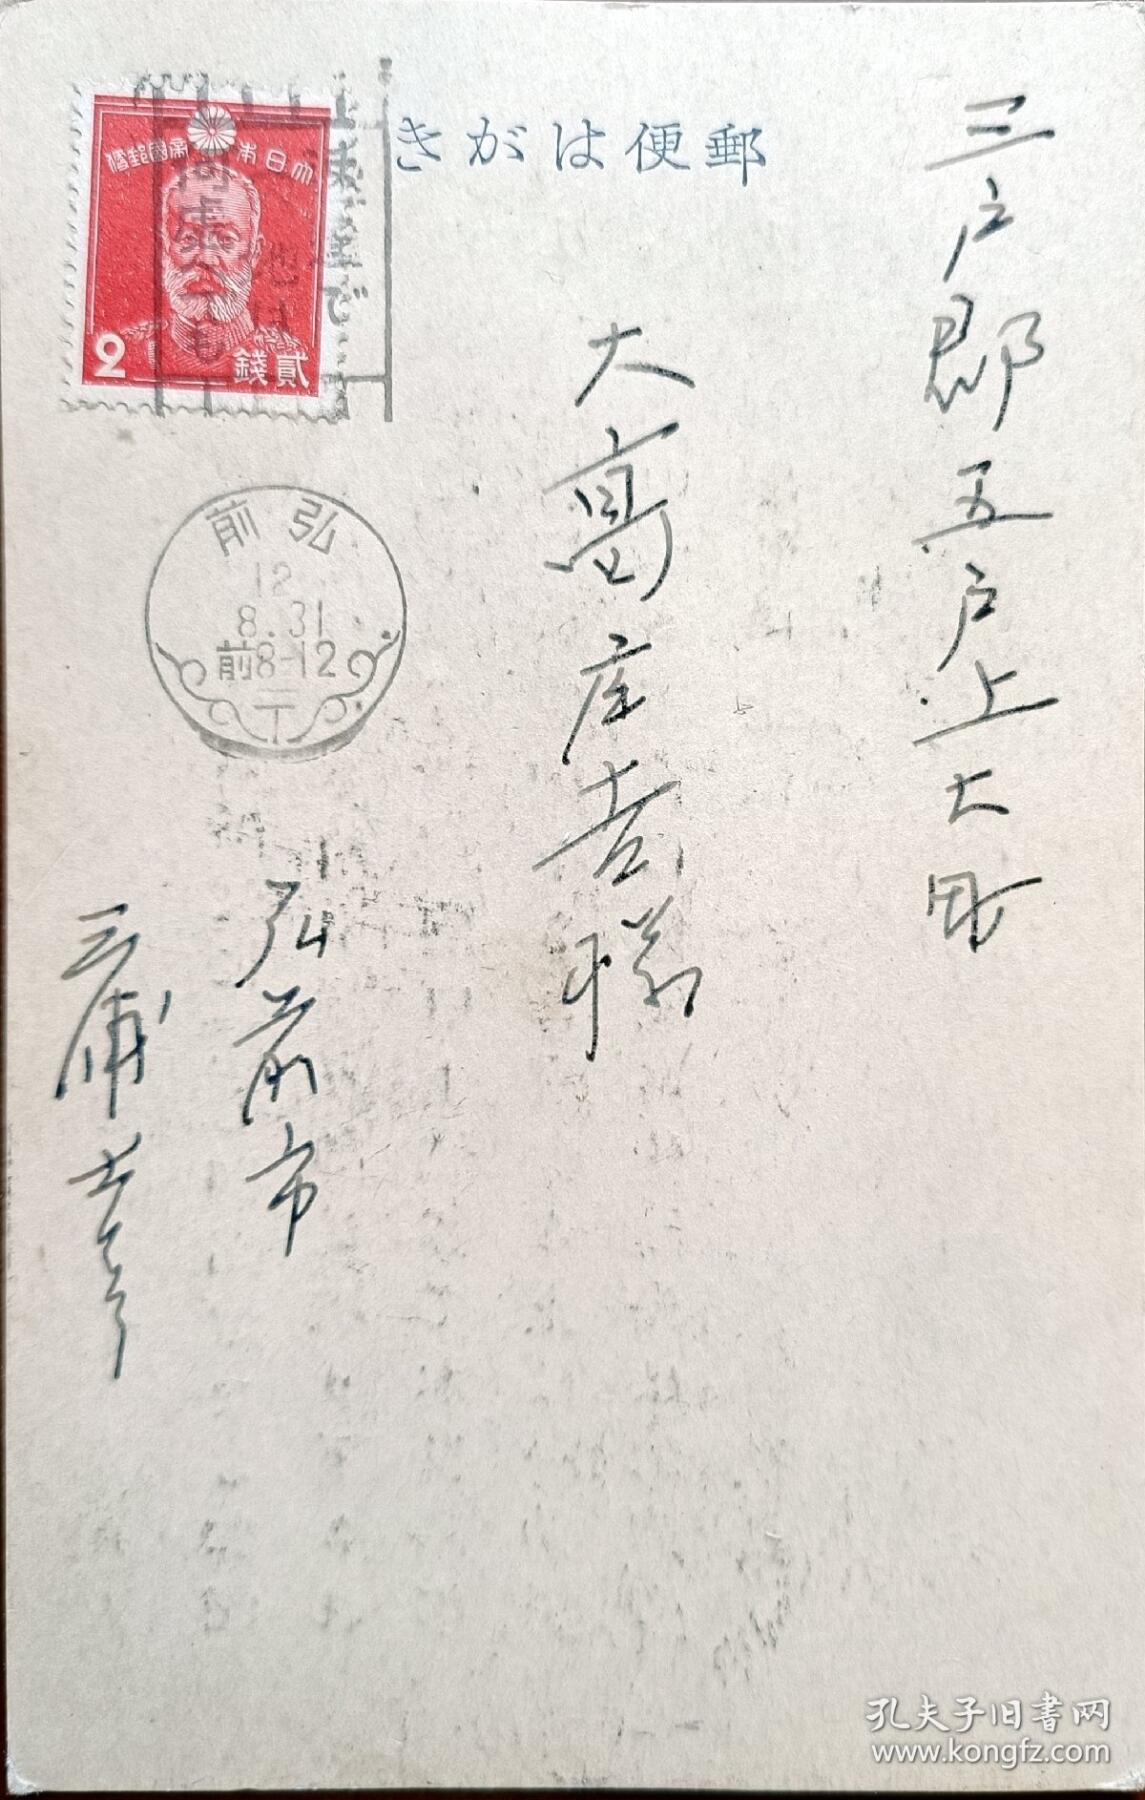 郵便はがき
大日本帝國郵便
2
貳錢
弘前
12
8.31
前8-12
三戸郡五戸上大町
大嶌庄吉様
弘前市
三浦
孔夫子旧書网
www.kongfz.com